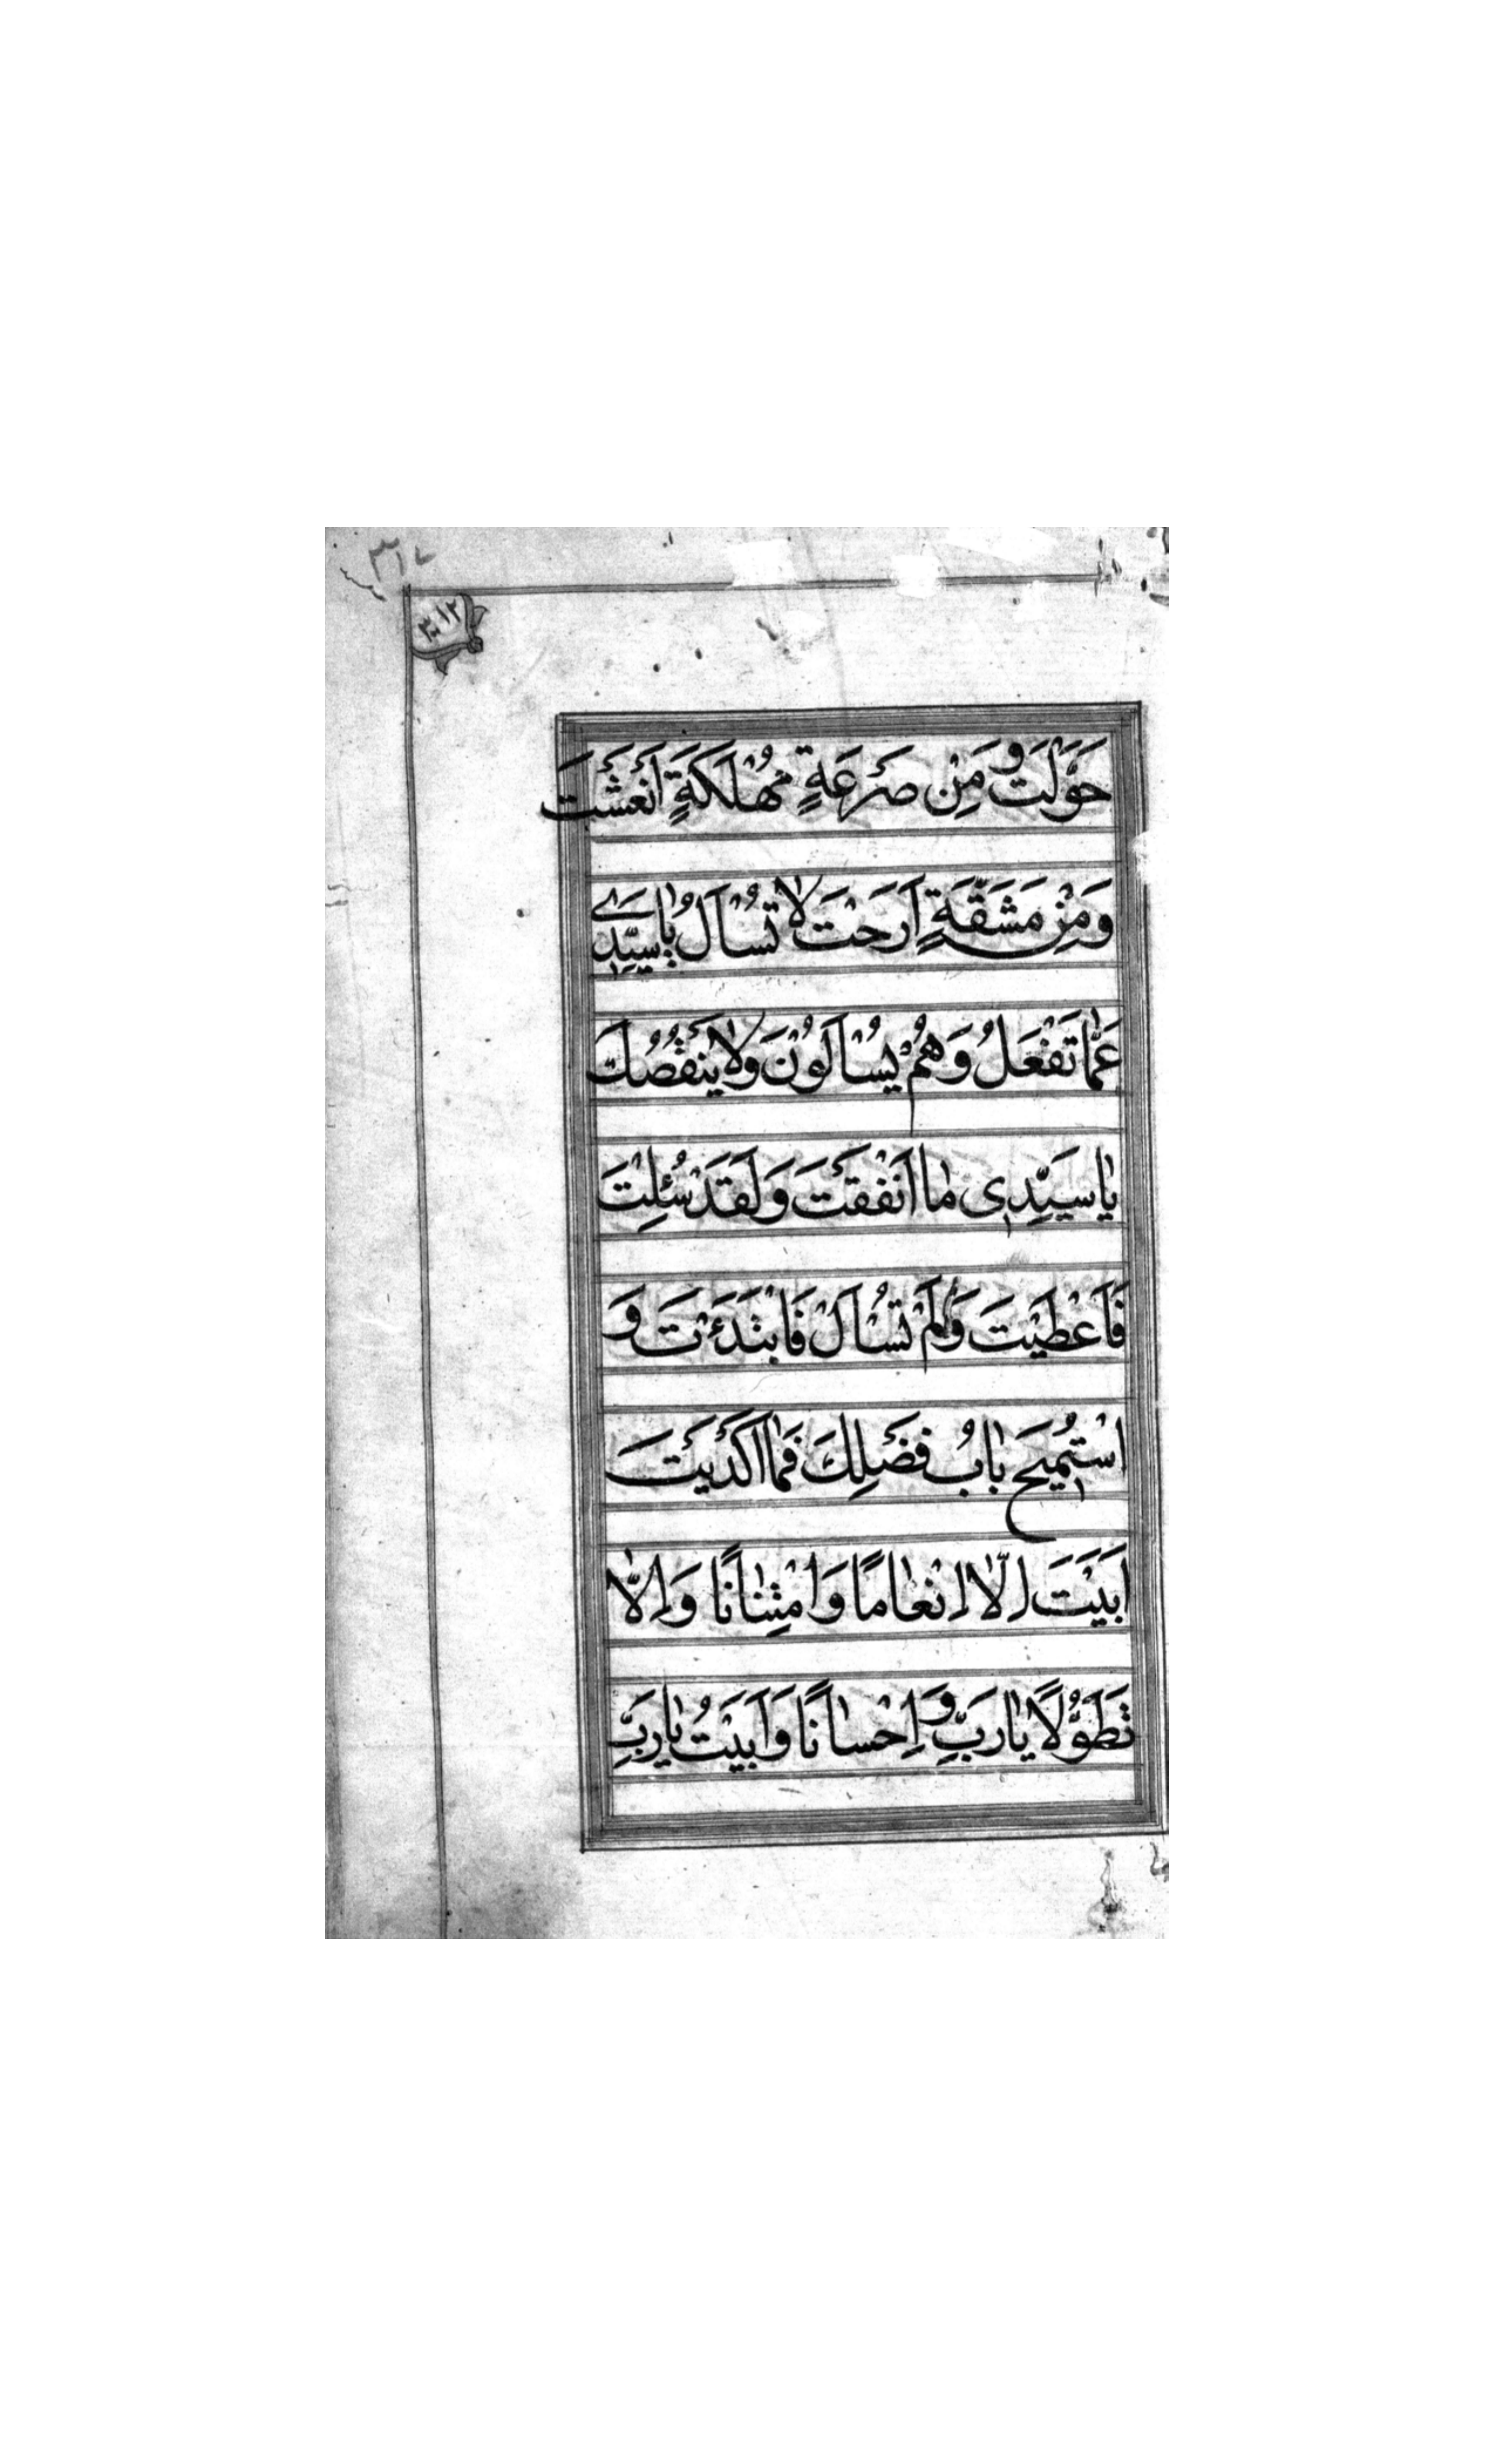 حَوَّلْتَ وَ مِنْ صَرْعَةٍ مُهْلِكَةٍ اَنْعَشْتَ
وَ مِنْ مَشَقَّةٍ اَرَحْتَ لَا تُسْاَلُ يَا سَيِّدِى
عَمَّا تَفْعَلُ وَ هُمْ يُسْاَلُوْنَ وَ لَا يَنْقُصُكَ
يَا سَيِّدِى مَا اَنْفَقْتَ وَ لَقَدْ سُئِلْتَ
فَاَعْطَيْتَ وَ لَمْ تُسْاَلْ فَابْتَدَءْتَ وَ
اسْتُمِيْحَ بَابُ فَضْلِكَ فَمَا اَكْدَيْتَ
اَبَيْتَ اِلَّا اِنْعَامًا وَ امْتِنَانًا وَ اِلَّا
تَطَوُّلًا يَا رَبِّ وَ اِحْسَانًا وَ اَبَيْتُ يَا رَبِّ